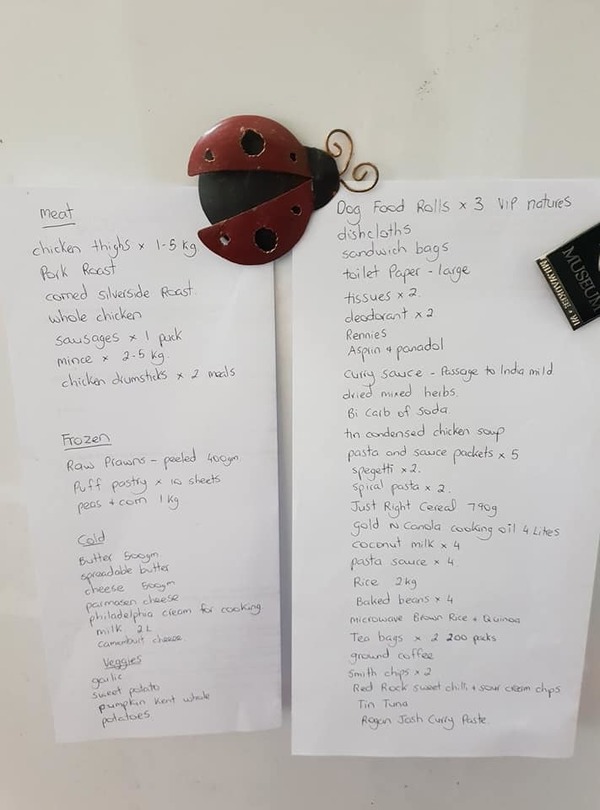 Meat
chicken thighs x 1-5 kg
Pork Roast
corned silverside Roast.
whole chicken
sausages x 1 pack
mince x 2-5 kg.
chicken drumsticks x 2 meals
Frozen
Raw Prawns - peeled 400gm
Puff pastry x 10 sheets
peas + corn 1 kg
Cold
Butter 500gm
spreadable butter
cheese 500gm
parmasen cheese
philadelphia cream for cooking
milk 2L
camenburt cheese.
Veggies
garlic
sweet potato
pumpkin Kent whole
potatoes
Dog Food Rolls x 3 VIP natures
dishcloths
sandwich bags
toilet Paper - large
tissues x 2.
deodorant x 2
Rennies
Asprin + panadol
Curry sauce - Passage to India mild
dried mixed herbs.
Bi carb of soda
tin condensed chicken soup
pasta and sauce packets x 5
spegetti x 2.
spiral pasta x 2.
Just Right Cereal 790g
gold N Canola cooking oil 4 Lites
coconut milk x 4
pasta sauce x 4
Rice 2kg
Baked beans x 4
microwave Brown Rice + Quinoa
Tea bags x 2 200 packs
ground coffee
Smith chips x 2
Red Rock sweet chilli + sour cream chips
Tin Tuna
Rogan Josh Curry Paste
MUSEUM
MILWAUKEE • WI